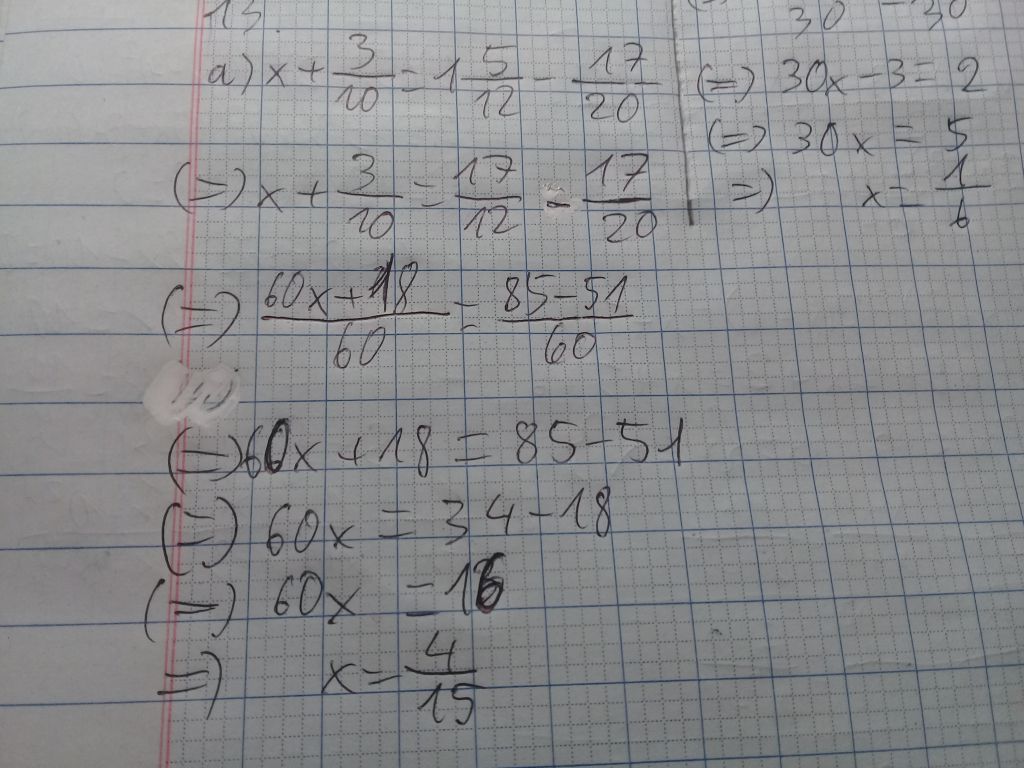 13.
a) x + 3/10 = 1 5/12 - 17/20
(=) x + 3/10 = 17/12 - 17/20
(=) 60x + 18/60 = 85 - 51/60
(=) 60x + 18 = 85 - 51
(=) 60x = 34 - 18
(=) 60x = 16
=) x = 4/15
30 - 30
(=) 30x - 3 = 2
(=) 30x = 5
=) x = 1/6